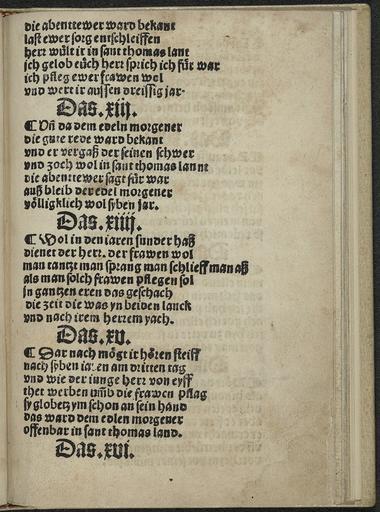 die abenttewer ward bekant
last ewer sorg entschleiffen
herr wült ir in sant thomas lant
ich gelob eüch herr sprich ich für war
ich pfleg ewer frawen wol
vnd wert ir aussen dreissig jar.
Das .xiij.
¶ Vñ da dem edeln morgener
die gute rede ward bekant
vnd er vergaß der seinen schwer
vnd zoch wol in sant thomas lannt
die abenttewer sagt für war
auß bleib der edel morgener
völligklich wol syben jar.
Das .xiiij.
¶ Wol in den iaren sunder haß
dienet der herr. der frawen wol
man tantzt man sprang man schlieff man aß
als man solch frawen pflegen sol
in gantzen eren das geschach
die zeit die was yn beiden lanck
vnd nach irem herrem yach.
Das .xv.
¶ Dar nach mögt ir hören steiff
nach syben iaren am dritten tag
vnd wie der iunge herr von eyff
thet werben vm̃b die frawen pflag
sy globetz ym schon an sein hand
das ward dem edlen morgener
offenbar in sant thomas land.
Das .xvi.